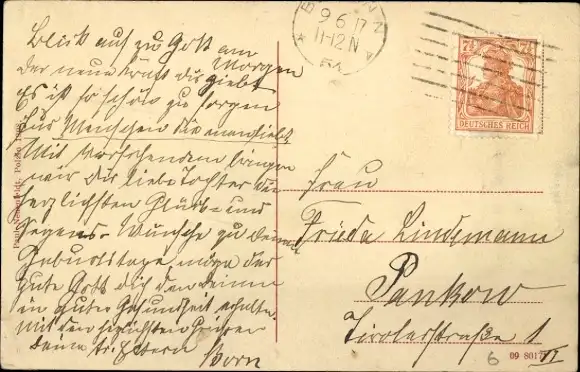 Blick auf zu Gott am
Morgen
der neue Kraft dir giebt
Es ist so schön zu sorgen
für Menschen die man liebt
Mit Vorstehendem bringen
wir dir liebe Tochter die
herzlichsten Glück- und
Segens-Wünsche zu deinem
Geburtstage möge der
gute Gott dich den deinen
in guter Gesundheit erhalten
mit den herzlichsten Grüßen
deine tr. Eltern
Born
9 6 17
11-12 N
7½
DEUTSCHES REICH
Frau
Frieda Lindemann
Pankow
Tirolerstraße 1
II
6
09 8017